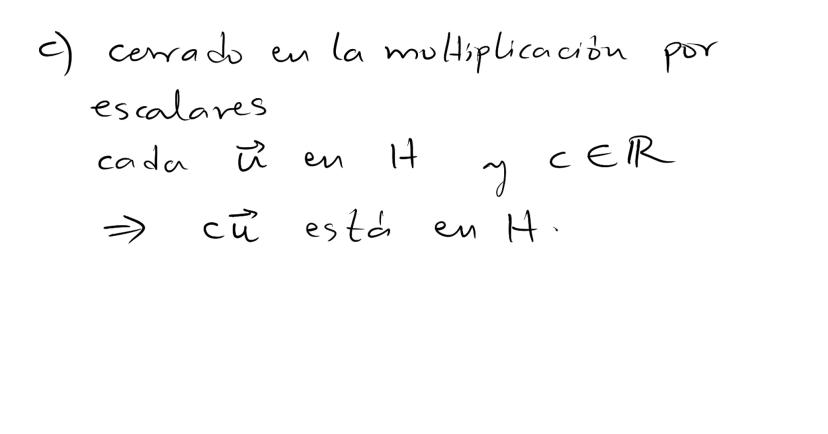 c) cerrado en la multiplicación por
escalares
cada u⃗ en H y c ∈ ℝ
⇒ cu⃗ está en H.